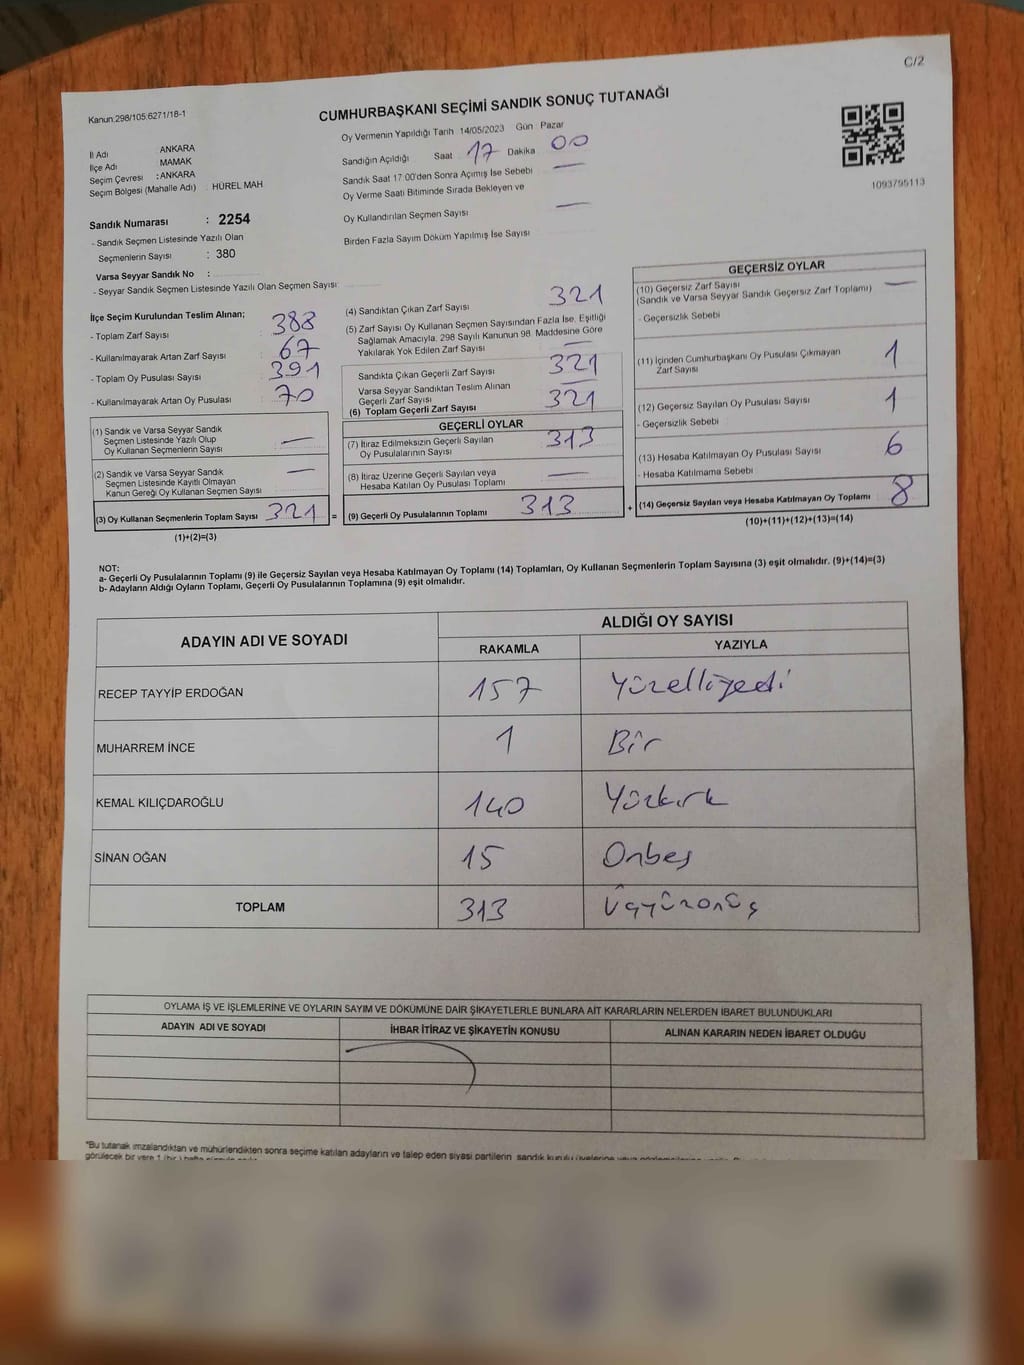 C/2
Kanun:298/105.6271/18-1
CUMHURBAŞKANI SEÇİMİ SANDIK SONUÇ TUTANAĞI
İl Adı ANKARA
İlçe Adı MAMAK
Seçim Çevresi : ANKARA
Seçim Bölgesi (Mahalle Adı) HÜREL MAH
Oy Vermenin Yapıldığı Tarih 14/05/2023 Gün Pazar
Sandığın Açıldığı Saat 17 Dakika 00
Sandık Saat 17:00'den Sonra Açımış İse Sebebi —
Oy Verme Saati Bitiminde Sırada Bekleyen ve
Oy Kullandırılan Seçmen Sayısı —
Birden Fazla Sayım Döküm Yapılmış İse Sayısı
1093795113
Sandık Numarası : 2254
- Sandık Seçmen Listesinde Yazılı Olan
Seçmenlerin Sayısı : 380
Varsa Seyyar Sandık No :
- Seyyar Sandık Seçmen Listesinde Yazılı Olan Seçmen Sayısı:
İlçe Seçim Kurulundan Teslim Alınan;
- Toplam Zarf Sayısı 388
- Kullanılmayarak Artan Zarf Sayısı 67
- Toplam Oy Pusulası Sayısı 391
- Kullanılmayarak Artan Oy Pusulası 70
(1) Sandık ve Varsa Seyyar Sandık
Seçmen Listesinde Yazılı Olup
Oy Kullanan Seçmenlerin Sayısı —
(2) Sandık ve Varsa Seyyar Sandık
Seçmen Listesinde Kayıtlı Olmayan
Kanun Gereği Oy Kullanan Seçmen Sayısı —
(3) Oy Kullanan Seçmenlerin Toplam Sayısı 321 =
(1)+(2)=(3)
(4) Sandıktan Çıkan Zarf Sayısı 321
(5) Zarf Sayısı Oy Kullanan Seçmen Sayısından Fazla İse, Eşitliği
Sağlamak Amacıyla, 298 Sayılı Kanunun 98. Maddesine Göre
Yakılarak Yok Edilen Zarf Sayısı —
Sandıkta Çıkan Geçerli Zarf Sayısı 321
Varsa Seyyar Sandıktan Teslim Alınan
Geçerli Zarf Sayısı —
(6) Toplam Geçerli Zarf Sayısı 321
GEÇERLİ OYLAR
(7) İtiraz Edilmeksizin Geçerli Sayılan
Oy Pusulalarının Sayısı 313
(8) İtiraz Üzerine Geçerli Sayılan veya
Hesaba Katılan Oy Pusulası Toplamı —
(9) Geçerli Oy Pusulalarının Toplamı 313 +
GEÇERSİZ OYLAR
(10) Geçersiz Zarf Sayısı —
(Sandık ve Varsa Seyyar Sandık Geçersiz Zarf Toplamı)
- Geçersizlik Sebebi
(11) İçinden Cumhurbaşkanı Oy Pusulası Çıkmayan
Zarf Sayısı 1
(12) Geçersiz Sayılan Oy Pusulası Sayısı 1
- Geçersizlik Sebebi
(13) Hesaba Katılmayan Oy Pusulası Sayısı 6
- Hesaba Katılmama Sebebi
(14) Geçersiz Sayılan veya Hesaba Katılmayan Oy Toplamı 8
(10)+(11)+(12)+(13)=(14)
NOT:
a- Geçerli Oy Pusulalarının Toplamı (9) ile Geçersiz Sayılan veya Hesaba Katılmayan Oy Toplamı (14) Toplamları, Oy Kullanan Seçmenlerin Toplam Sayısına (3) eşit olmalıdır. (9)+(14)=(3)
b- Adayların Aldığı Oyların Toplamı, Geçerli Oy Pusulalarının Toplamına (9) eşit olmalıdır.
ADAYIN ADI VE SOYADI ALDIĞI OY SAYISI
RAKAMLA YAZIYLA
RECEP TAYYİP ERDOĞAN 157 Yüzelliyedi
MUHARREM İNCE 1 Bir
KEMAL KILIÇDAROĞLU 140 Yüzkırk
SİNAN OĞAN 15 Onbeş
TOPLAM 313 Üçyüzonüç
OYLAMA İŞ VE İŞLEMLERİNE VE OYLARIN SAYIM VE DÖKÜMÜNE DAİR ŞİKAYETLERLE BUNLARA AİT KARARLARIN NELERDEN İBARET BULUNDUKLARI
ADAYIN ADI VE SOYADI İHBAR İTİRAZ VE ŞİKAYETİN KONUSU ALINAN KARARIN NEDEN İBARET OLDUĞU
*Bu tutanak imzalandıktan ve mühürlendikten sonra seçime katılan adayların ve talep eden siyasi partilerin sandık kurulu
görülecek bir yere 1 (bir)